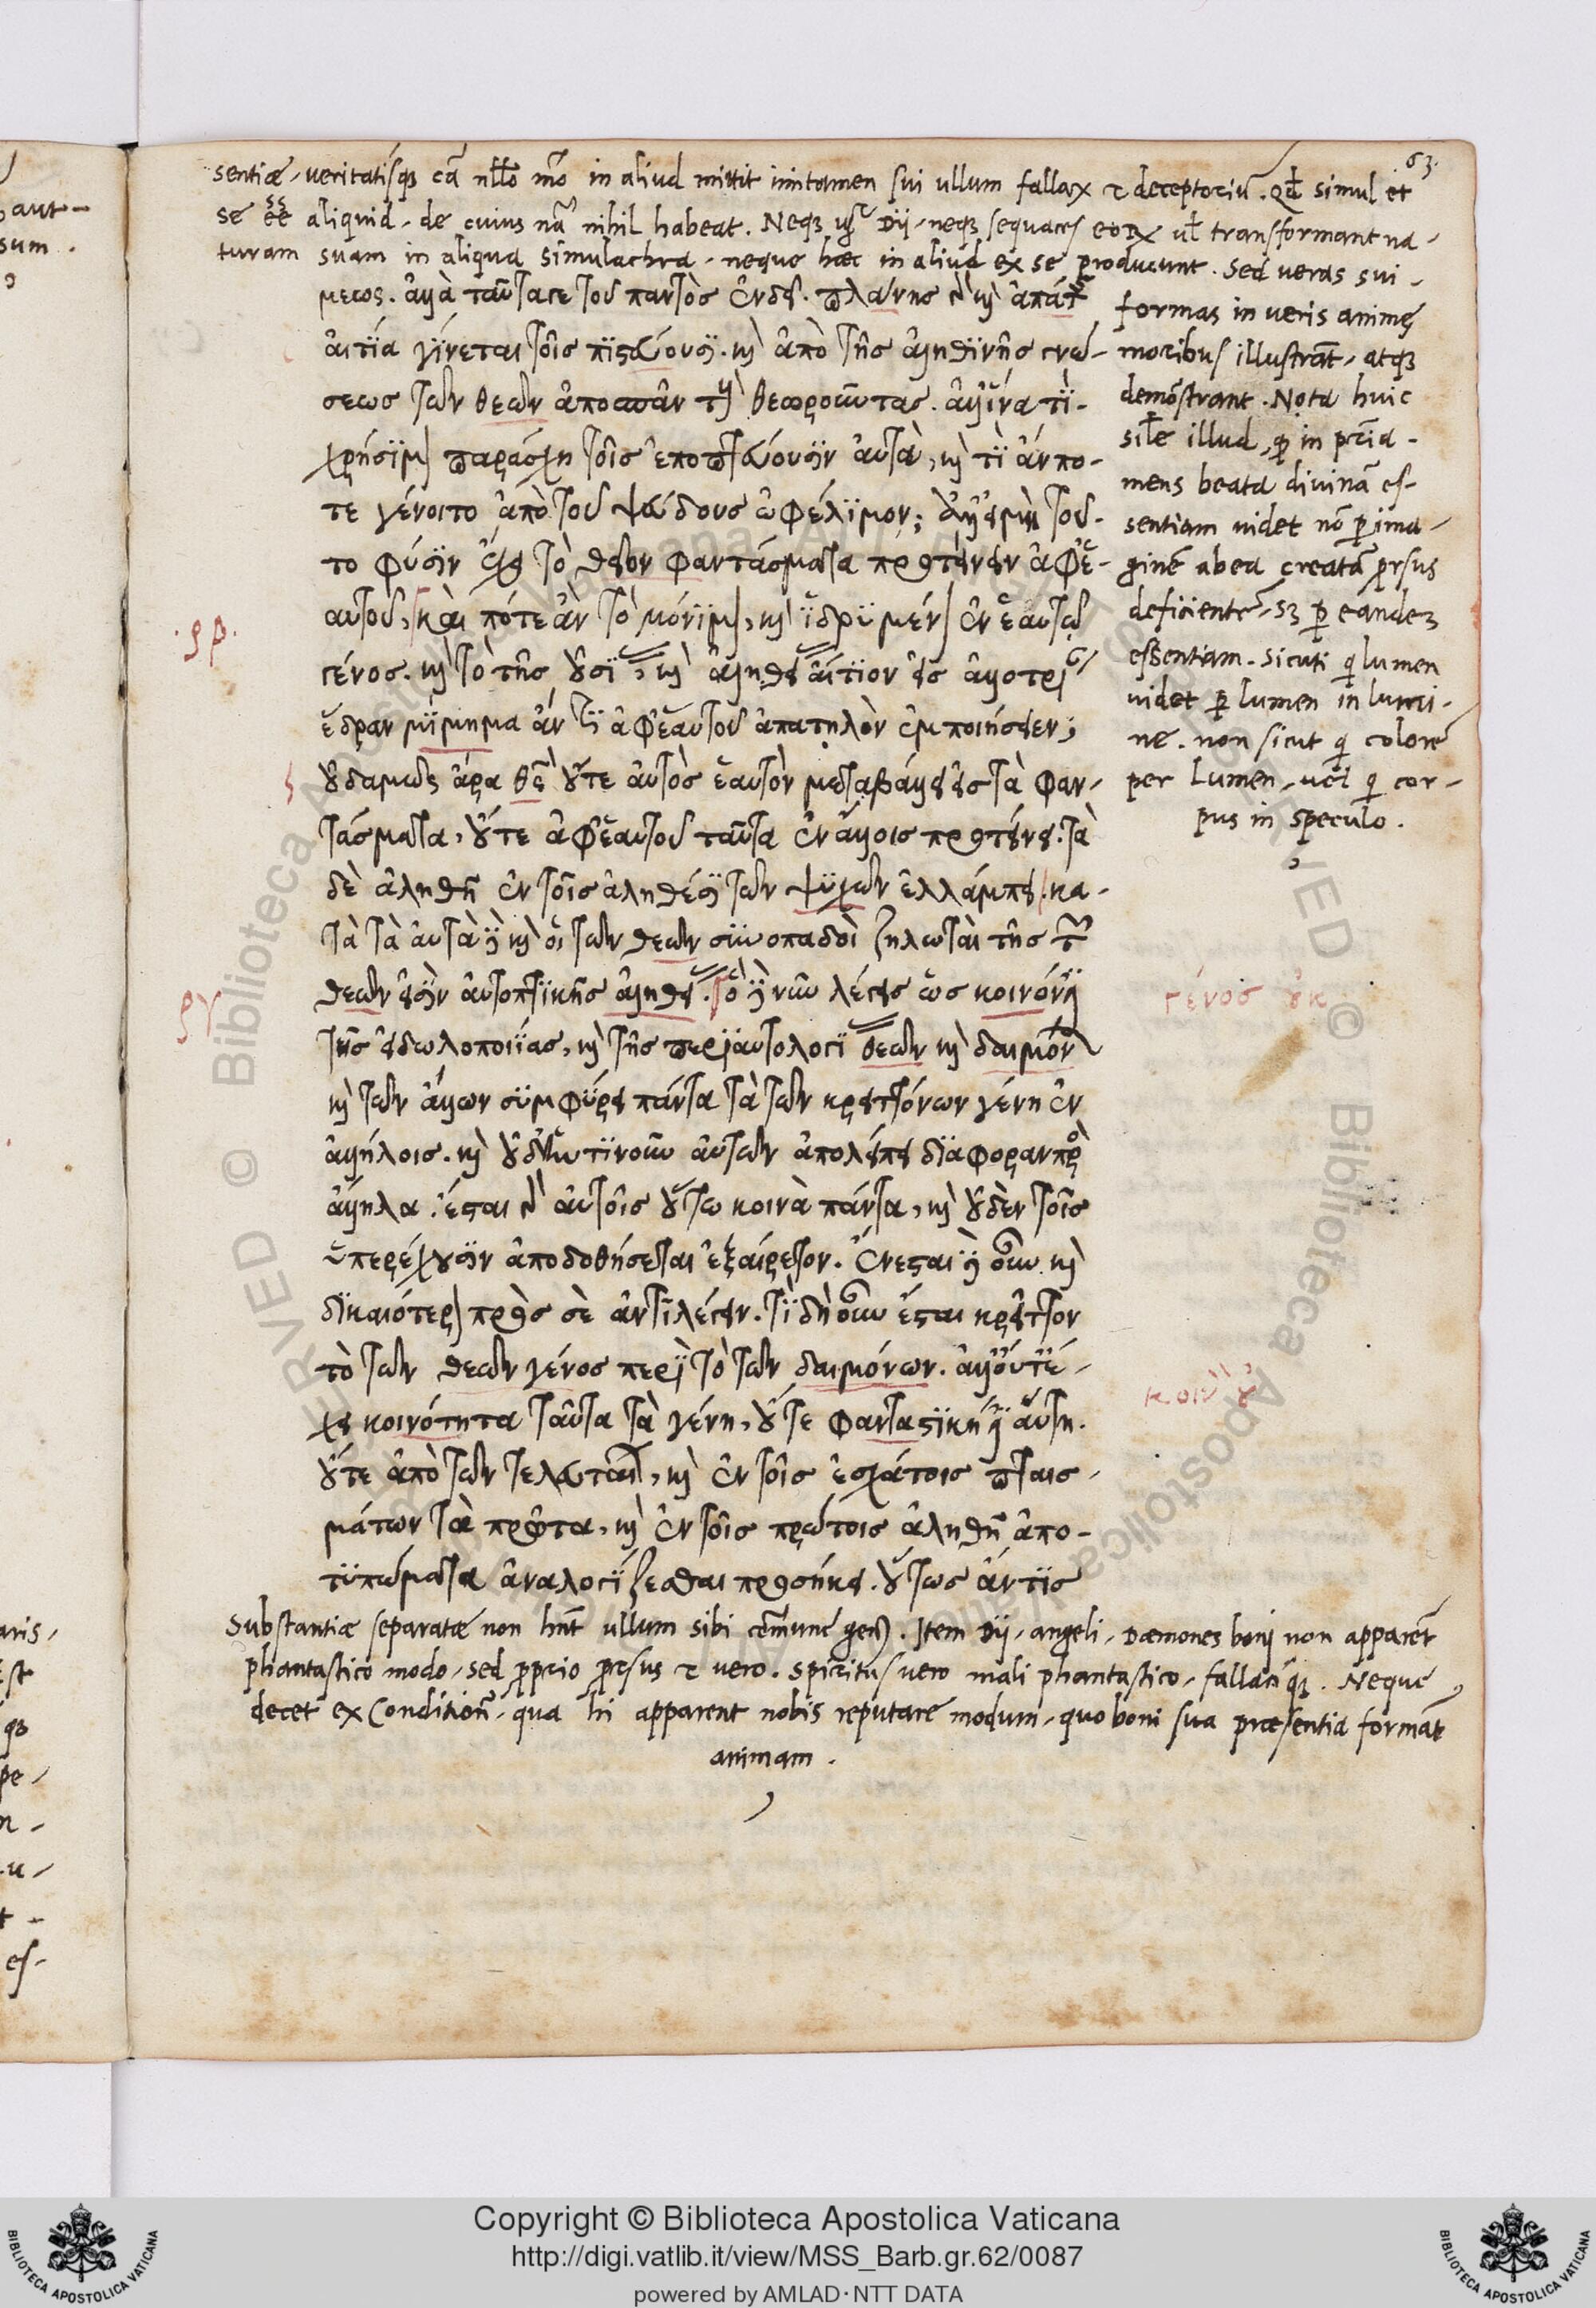 63.
sentiæ, veritatisq3 cā nłło mō in aliud mittit imitamen sui ullum fallax & deceptoriū. Qđ simul et
se ēē aliquid, de cuius nā nihil habeat. Neq3 Dii, neq3 sequaces eoꝝ vł transformant na-
turam suam in aliqua simulachra, neque hæc in aliud ex se producunt. Sed veras sui
formas in veris animę
moribus illustrāt, atq3
demōstrant. Nota huic
silē illud, in pr̄ia
mens beata divinā es-
sentiam videt nō ꝑ ima-
ginē ab ea creatā prorsus
deficientē, s3 ꝑ eande3
essentiam. Sicuti qui lumen
videt ꝑ lumen in lumi-
ne. non sicut qui colorē
per lumen, vel qui cor-
pus in speculo.
μεως. ἀλλὰ ταῦτά γε τοῦ παντὸς ἐνδεῖ. πλάνης δὲ καὶ ἀπάτης
αἰτία γίνεται τοῖς πιστεύουσι. καὶ ἀπὸ τῆς ἀληθινῆς γνώ-
σεως τῶν θεῶν ἀποσπᾶν τοὺς θεωροῦντας. ἀλλ' ἵνα τί
χρήσιμον παράσχῃ τοῖς ἐποπτεύουσιν αὐτά, καὶ τί ἄν πο-
τε γένοιτο ἀπὸ τοῦ ψεύδους ὠφέλιμον; ἀλλ' εἰ μὴ τοῦ-
το φύσιν ἔχει τὸ θεῖον φαντάσματα προτείνειν ἀφ' ἑ-
αυτοῦ, καὶ πότε ἂν τὸ μόνιμον, καὶ ἱδρυμένον ἐν ἑαυτῷ
γένος. καὶ τὸ τῆς οὐσίας, καὶ ἀληθείας αἴτιον εἰς ἀλλοτρίαν
ἕδραν μίμημα ἄν τι ἀφ' ἑαυτοῦ ἀπατηλὸν ἐμποιήσειεν;
οὐδαμῶς ἄρα θεὸς οὔτε αὐτὸς ἑαυτὸν μεταβάλλει εἰς τὰ φαν-
τάσματα, οὔτε ἀφ' ἑαυτοῦ ταῦτα ἐν ἄλλοις προτείνει. τὰ
δὲ ἀληθῆ ἐν τοῖς ἀληθέσι τῶν ψυχῶν ἐλλάμπει. κα-
τὰ τὰ αὐτὰ δὲ καὶ οἱ τῶν θεῶν συνοπαδοὶ ζηλωταί τῆς τῶν
θεῶν εἰσὶν αὐτοπτικῆς ἀληθείας. τὸ δὲ νῦν λέγεις ὡς κοινόν ἐστι
τῆς εἰδωλοποιίας, καὶ τῆς περιαυτολογίας θεῶν καὶ δαιμόνων
καὶ τῶν ἄλλων συμφύρει πάντα τὰ τῶν κρειττόνων γένη ἐν
ἀλλήλοις. καὶ οὐδ' ἡντινοῦν αὐτῶν ἀπολείπει διαφορὰν πρὸς
ἄλληλα. ἔσται δὲ αὐτοῖς οὕτω κοινὰ πάντα, καὶ οὐδὲν τοῖς
ὑπερέχουσιν ἀποδοθήσεται ἐξαίρετον. ἔνεσται δὲ οὖν καὶ
δικαιότερον πρὸς σὲ ἀντιλέγειν. τί δὴ οὖν ἔσται κρεῖττον
τὸ τῶν θεῶν γένος περὶ τὸ τῶν δαιμόνων. ἀλλ' οὔτ' ἔ-
χει κοινότητα ταῦτα τὰ γένη, οὔτε φανταστική ἐστιν αὕτη.
οὔτε ἀπὸ τῶν τελευταίων, καὶ ἐν τοῖς ἐσχάτοις πταισ-
μάτων τὰ πρῶτα, καὶ ἐν τοῖς πρώτοις ἀληθῆ ἀπο-
τυπώματα ἀναλογίζεσθαι προσήκει. οὕτως ἄν τις
γένος οὐκ
κοινὸν οὐ
Substantiæ separatæ non hnt ullum sibi cōmune gen9. Item Dii, angeli, Dæmones boni non apparēt
phantastico modo, sed ꝓprio prorsus & vero. Spiritus vero mali phantastico, fallaciq3. Neque
decet ex Conditionē, qua hi apparent nobis reputare modum, quo boni sua præsentia formāt
animam.
Copyright © Biblioteca Apostolica Vaticana
http://digi.vatlib.it/view/MSS_Barb.gr.62/0087
powered by AMLAD·NTT DATA